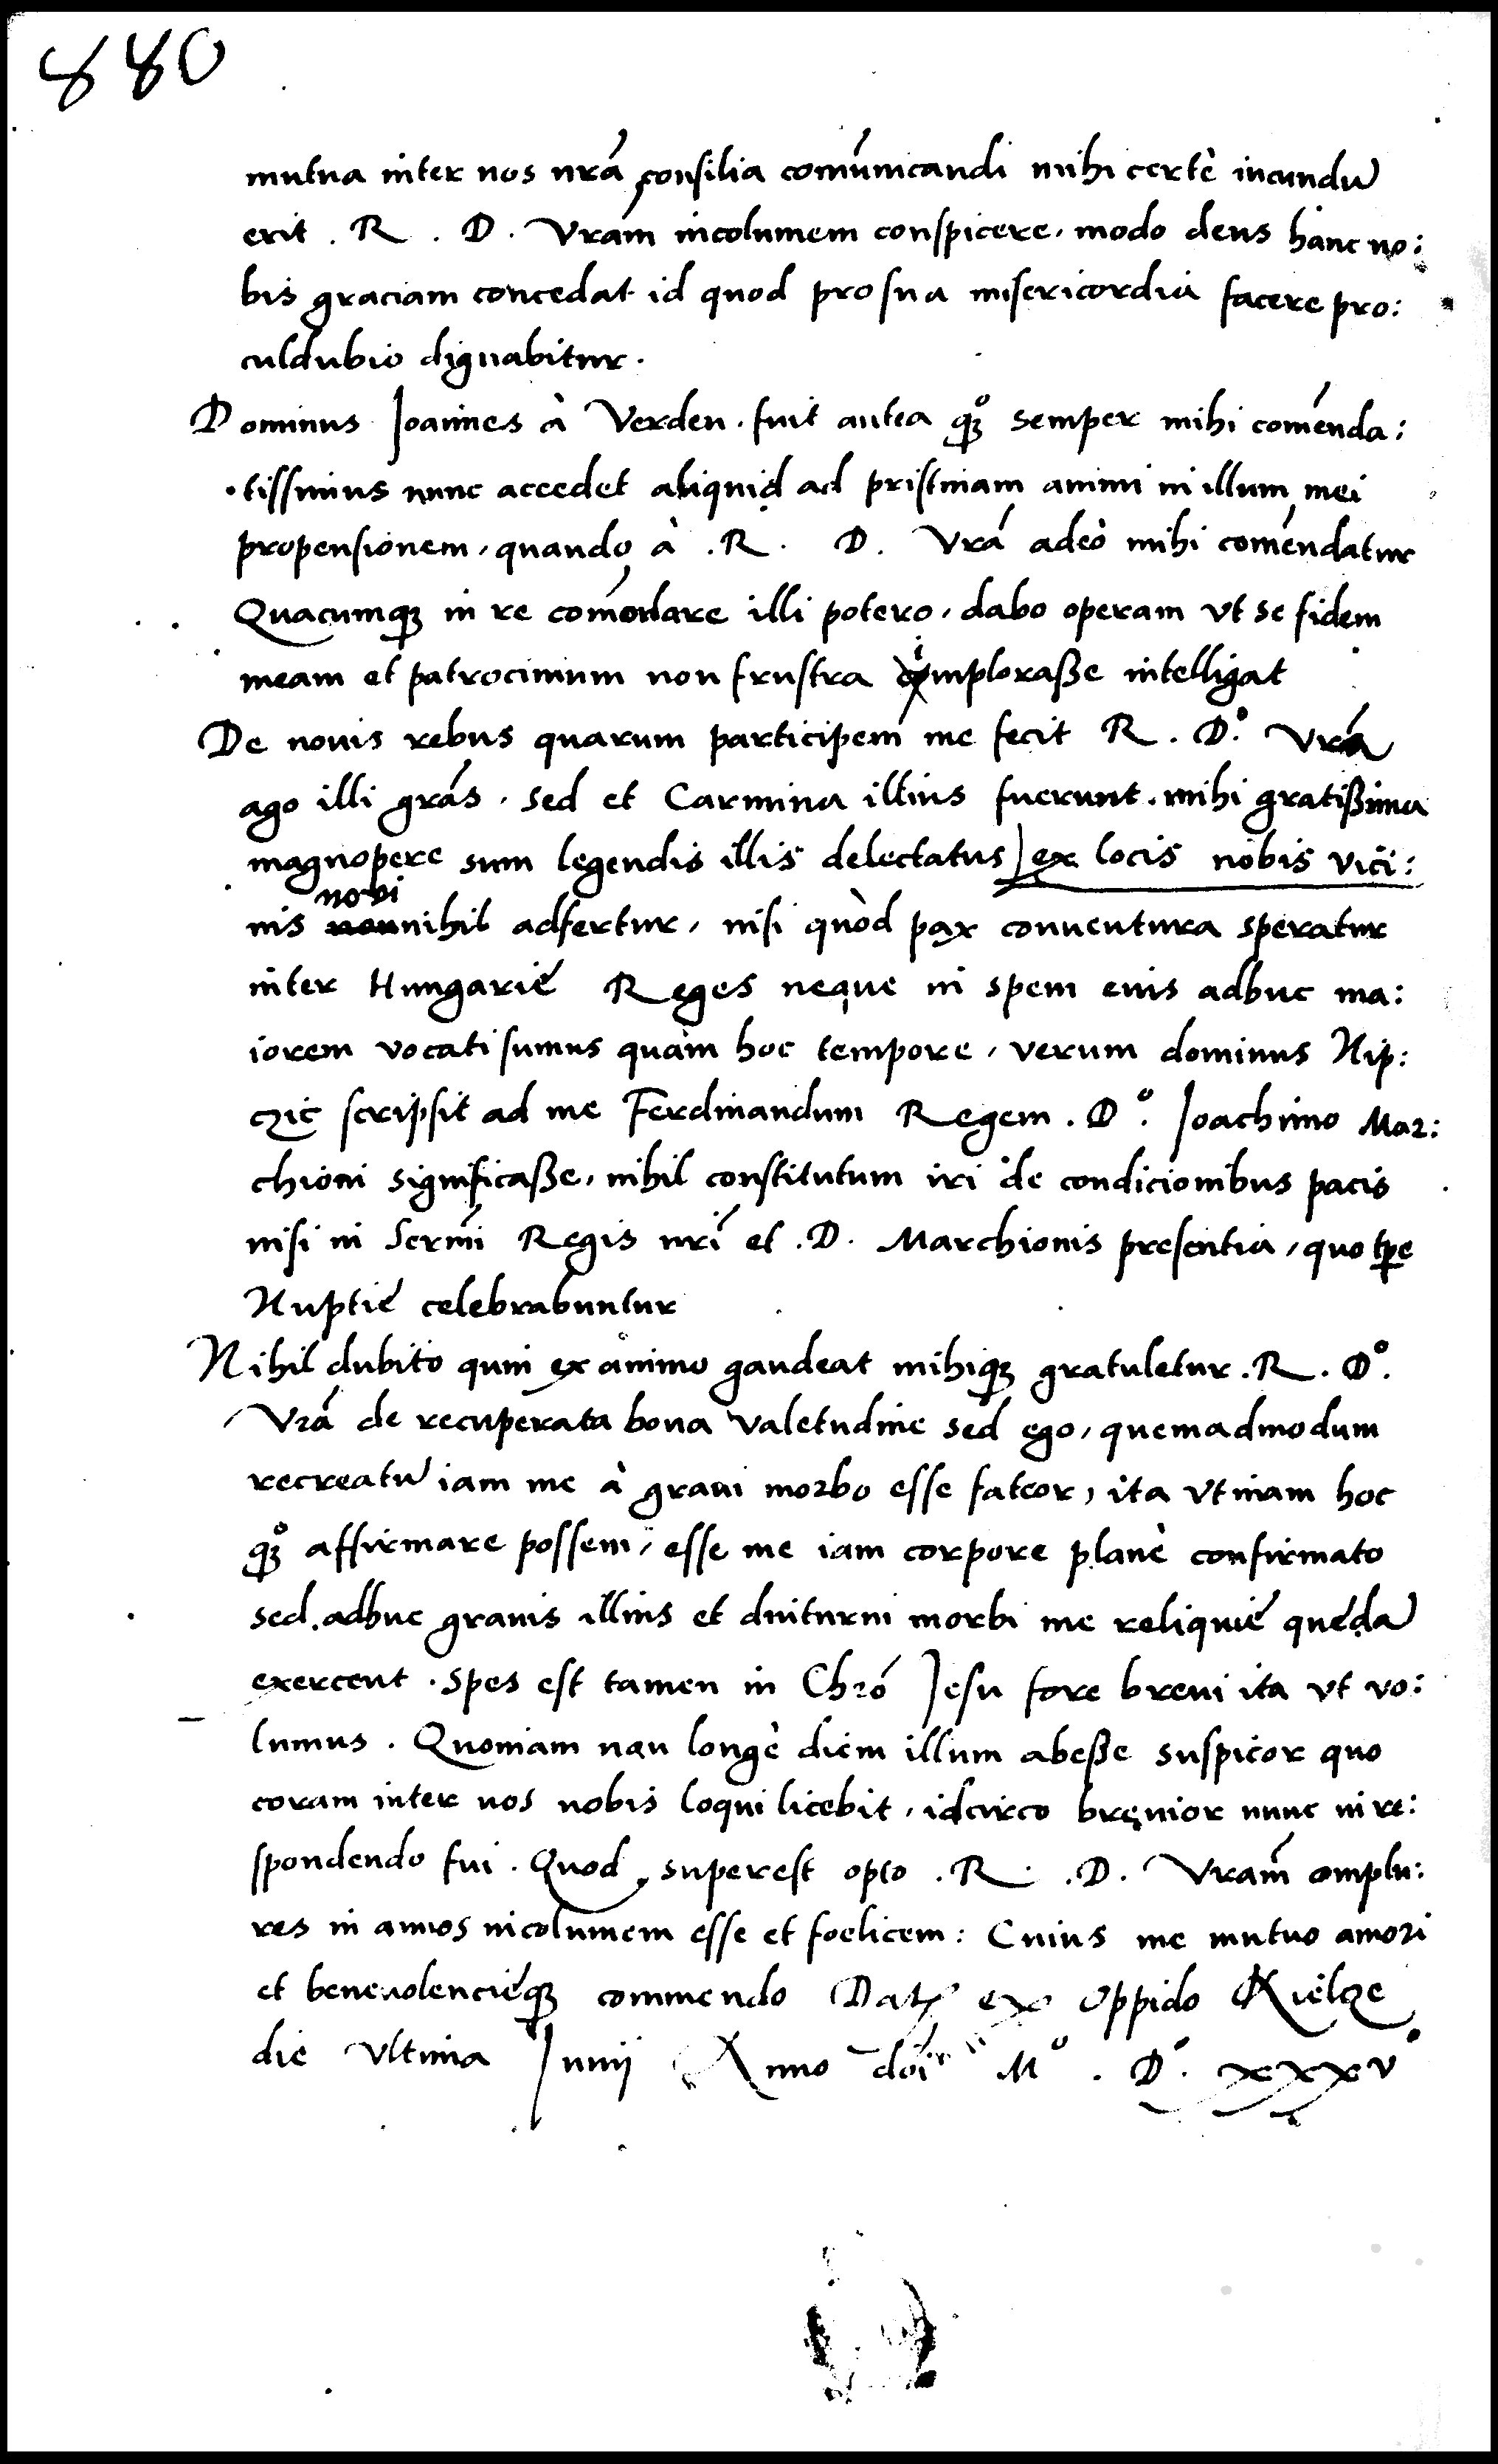 880
mutua inter nos nrã consilia comũnicandi mihi certè iucundũ
erit . R . D . Vram̃ incolumem conspicere, modo deus hanc no:
bis graciam concedat id quod pro sua misericordia facere pro:
culdubio dignabitur.
Dominus Joannes à Verden . fuit antea qꝫ semper mihi com̃enda:
tissimus nunc accedet aliquid ad pristinam animi in illum mei
propensionem, quando à . R . D . Vrã adeò mihi com̃endatur
Quacumqꝫ in re com̃odare illi potero, dabo operam vt se fidem
meam et patrocinium non frustra imploraße intelligat
De nouis rebus quarum participem me fecit R . D.º Vrã
ago illi grãs . sed et Carmina illius fuerunt . mihi gratißima
magnopere sum legendis illis delectatus ex locis nobis vici:
nis novi nihil adfertur, nisi quòd pax conuentura speratur
inter Hungarię Reges neque in spem eius adhuc ma:
iorem vocati sumus quàm hoc tempore, verum dominus Nip:
czic scripsit ad me Ferdinandum Regem . Dº . Joachimo Mar:
chioni significaße, nihil constitutum iri de condicionibus pacis
nisi in Serm̃i Regis nrĩ et . D . Marchionis presentia, quo tꝑe
Nuptię celebrabuntur
Nihil dubito quin ex animo gaudeat mihiqꝫ gratuletur . R . Dº .
Vrã de recuperata bona valetudine sed ego, quemadmodum
recreatũ iam me à graui morbo esse fateor, ita vtinam hoc
qꝫ affirmare possem, esse me iam corpore planè confirmato
sed adhuc grauis illius et diuturni morbi me reliquię quędã
exercent . spes est tamen in Chrõ Jesu fore breui ita vt vo:
lumus . Quoniam nõn longè diem illum abeße suspicor quo
coram inter nos nobis loqui licebit, idcirco breuior nunc in re:
spondendo fui . Quod superest opto . R . D . Vram̃ complu:
res in annos incolumem esse et foelicem : Cuius me mutuo amori
et beneuolencięqꝫ commendo Datꝭ ex Oppido Kielcze
die Vltima Junij Anno dõi Mº . Dº . xxxvº